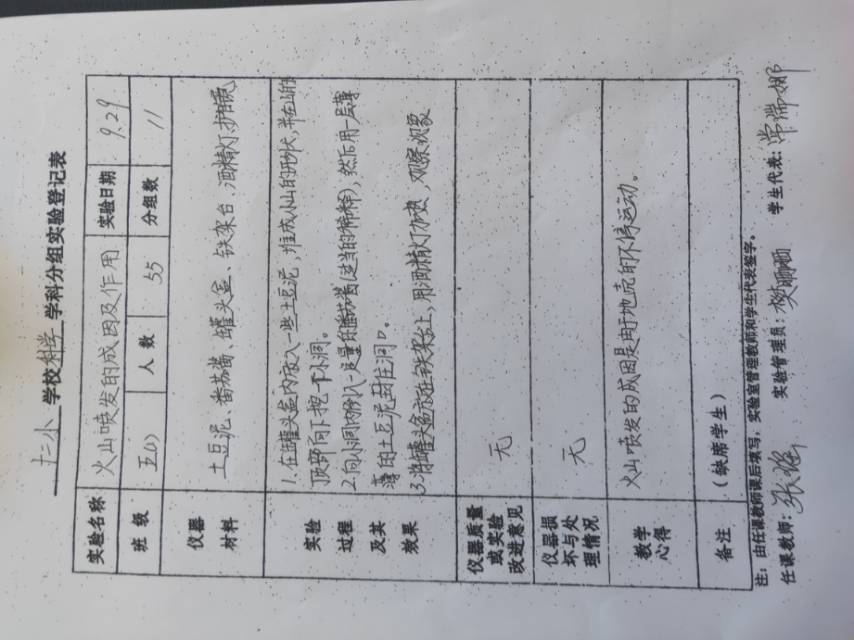 十二小 学校 科学 学科分组实验登记表
实验名称 火山喷发的成因及作用 实验日期 9.29
班 级 五(1) 人 数 55 分组数 11
仪器 材料 土豆泥、番茄酱、罐头盒、铁架台、酒精灯、护目镜
实验 过程 及其 效果
1.在罐头盒内放入一些土豆泥,堆成小山的形状,并在山的
顶部向下挖一个小洞。
2.向小洞内倒入一定量的番茄酱(适当的稀释),然后用一层薄
薄的土豆泥封住洞口。
3.将罐头盒放在铁架台上,用酒精灯加热,观察现象
仪器质量 或实验 改进意见 无
仪器损 坏与处 理情况 无
教学 心得 火山喷发的成因是由于地壳的不停运动。
备注 (缺席学生)
注:由任课教师课后填写,实验室管理教师和学生代表签字。
任课教师: 张 实验管理员: 樊 学生代表: 常